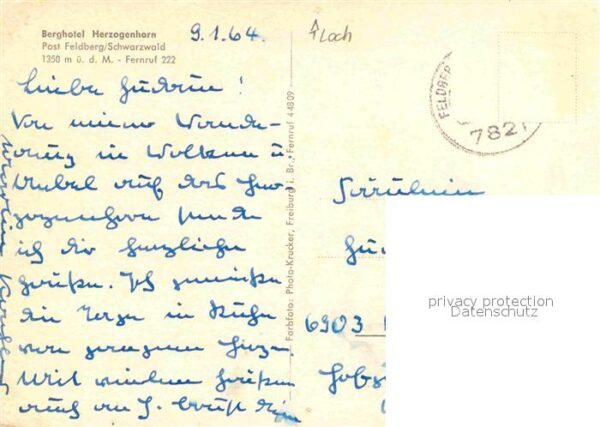 Berghotel Herzogenhorn
Post Feldberg/Schwarzwald
1350 m ü. d. M. - Fernruf 222
9.1.64.
Liebe Gudrun!
Von meiner Wande-
rung in Wolken u
Nebel auf das Her-
zogenhorn sende
ich dir herzliche
Grüße. Ich genieße
die Tage in Ruhe
von ganzem Herzen.
Mit vielen Grüßen
auch an
Farbfoto: Photo-Krucker, Freiburg i. Br., Fernruf 44809
Loch
FELDBER
7821
Fräulein
Gu
6903
privacy protection
Datenschutz